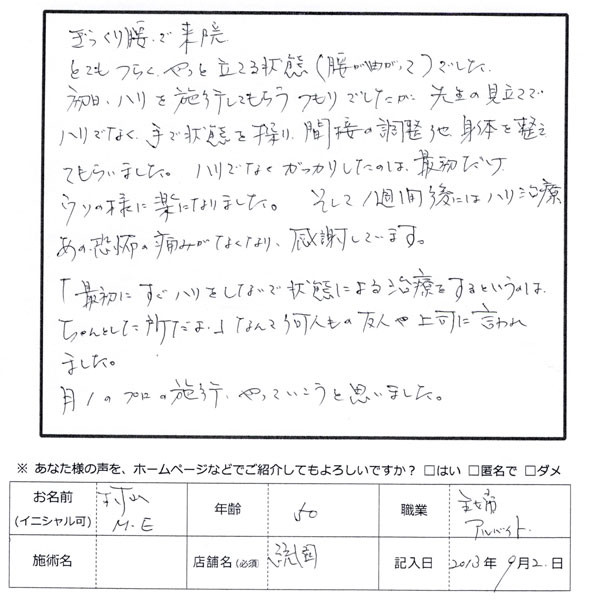 ぎっくり腰で来院
とてもつらく、やっと立てる状態(腰が曲がって)でした。
初日、ハリを施行してもらうつもりでしたが、先生の見立てで
ハリでなく、手で状態を探り、間接の調整他、身体を整え
てもらいました。ハリでなくガッカリしたのは、最初だけ
ウソの様に楽になりました。そして1週間後にはハリ治療
あの恐怖の痛みがなくなり、感謝しています。
「最初にすぐハリをしないで状態による治療をするというのは、
ちゃんとした所だよ。」なんて何人もの友人や上司に言われ
ました。
月1のプロの施行、やっていこうと思いました。
※ あなた様の声を、ホームページなどでご紹介してもよろしいですか? □はい □匿名で □ダメ
お名前 (イニシャル可) 村山 M.E 年齢 50 職業 主婦 アルバイト
施術名 店舗名(必須) 記入日 2013年 9月2.日